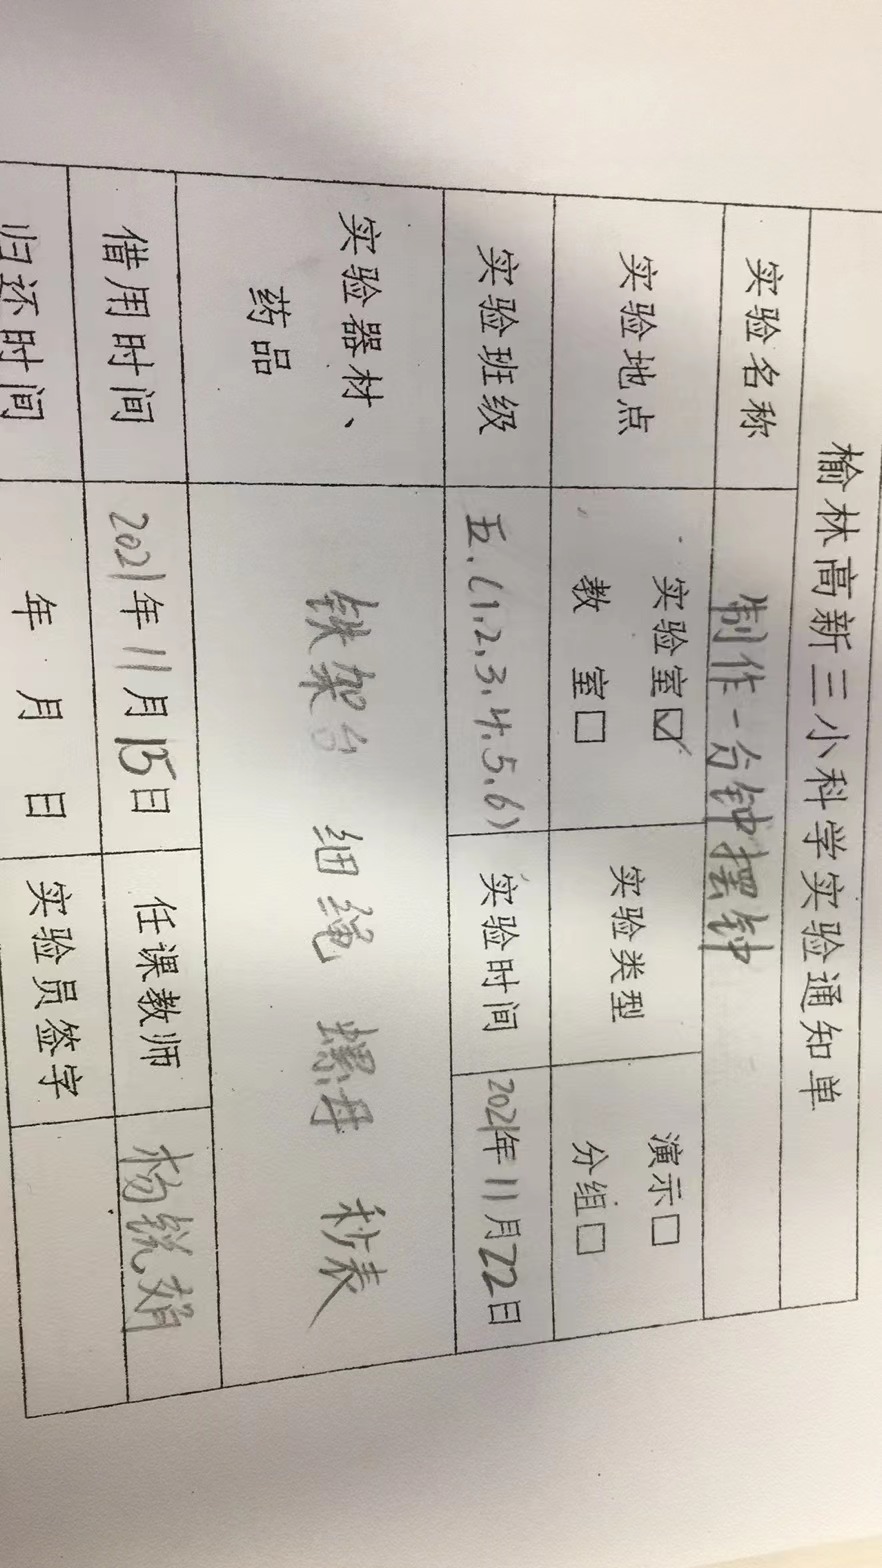 榆林高新三小科学实验通知单
实验名称 制作一分钟摆钟
实验地点 实验室☑ 教 室□ 实验类型 演示□ 分组□
实验班级 五.(1.2.3.4.5.6) 实验时间 2021年11月22日
实验器材、药品 铁架台 细绳 螺母 秒表
借用时间 2021年11月15日 任课教师 杨锐娟
归还时间 年 月 日 实验员签字